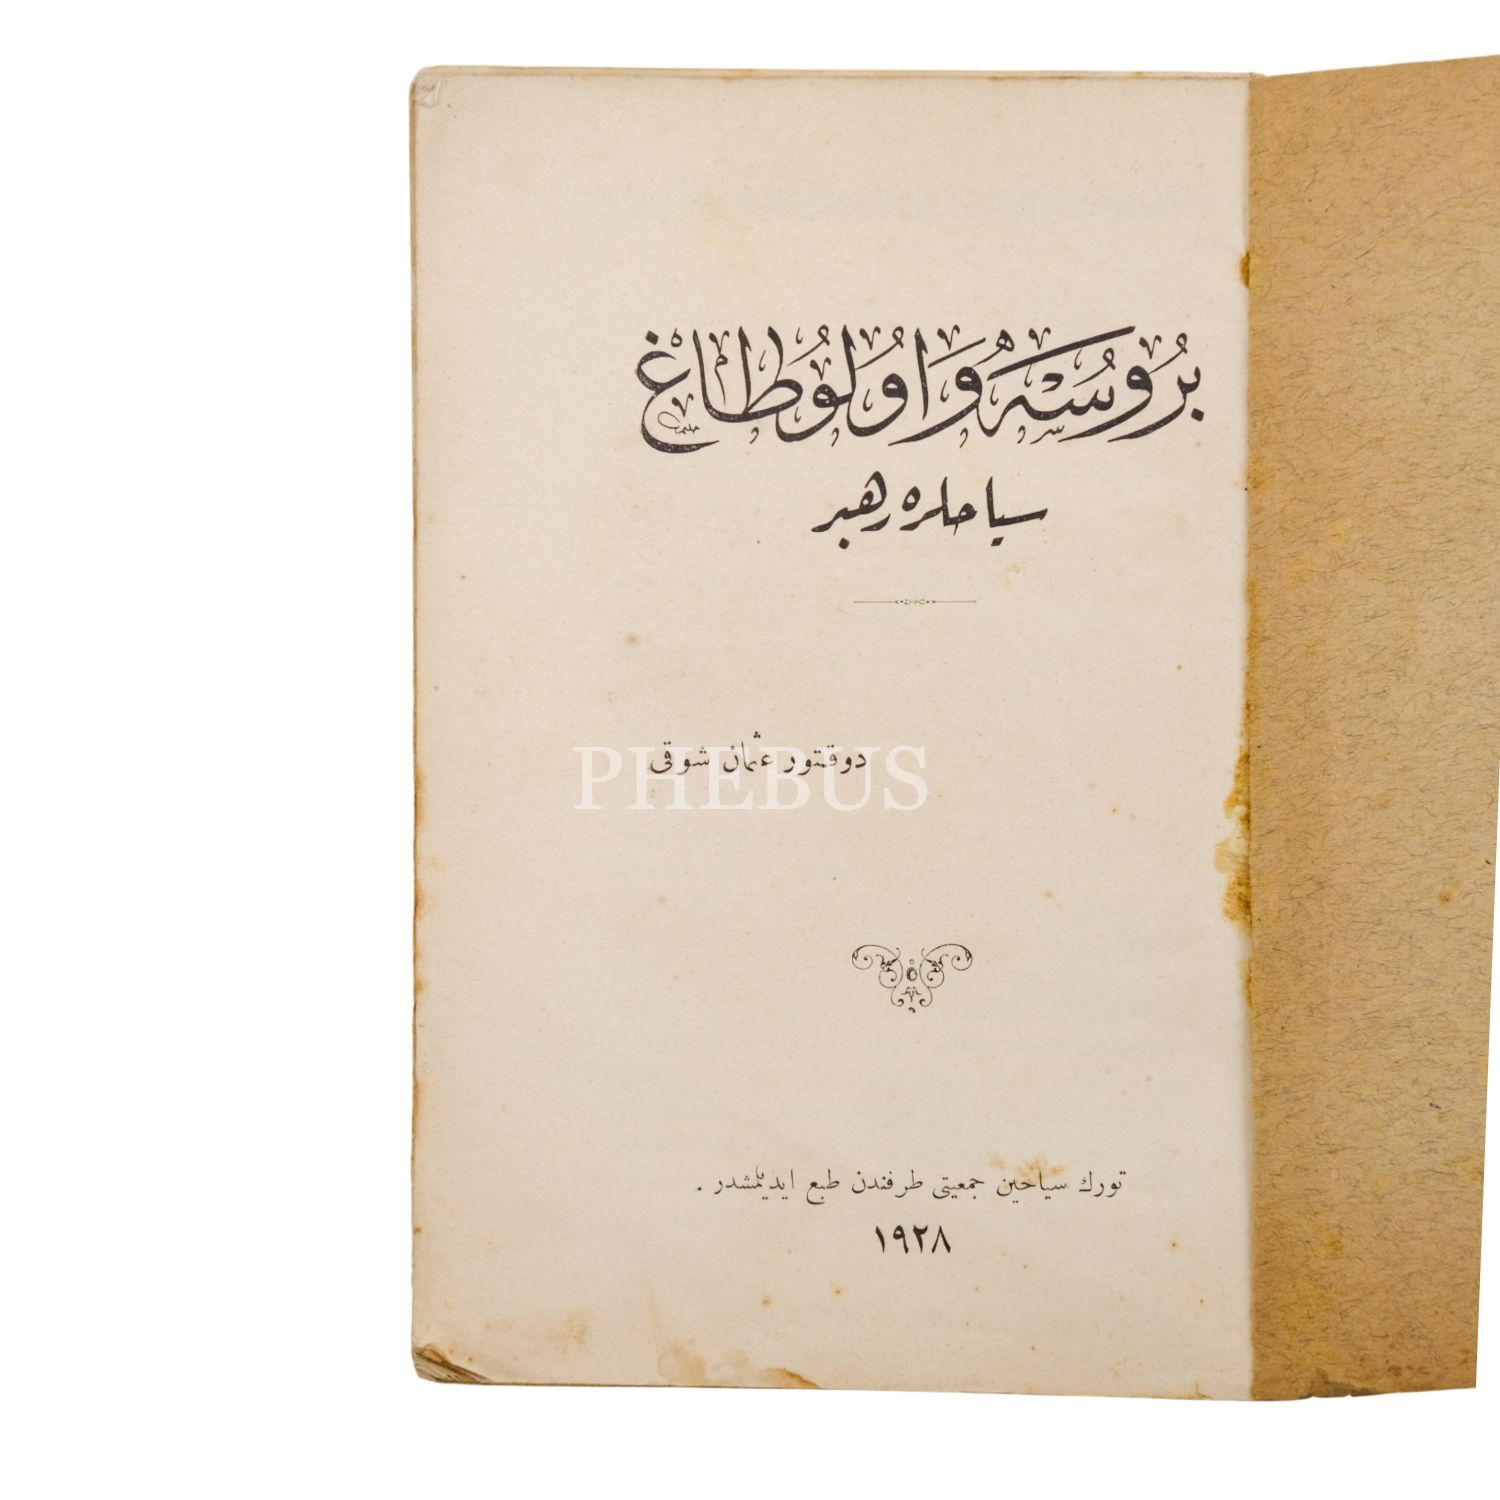 بُرُوسَهْ وَ اُولُوطَاغْ
سیاحلره رهبر
دوقتور عثمان شوقی
PHEBUS
تورك سیاحین جمعیتی طرفندن طبع ایدیلمشدر .
١٩٢٨